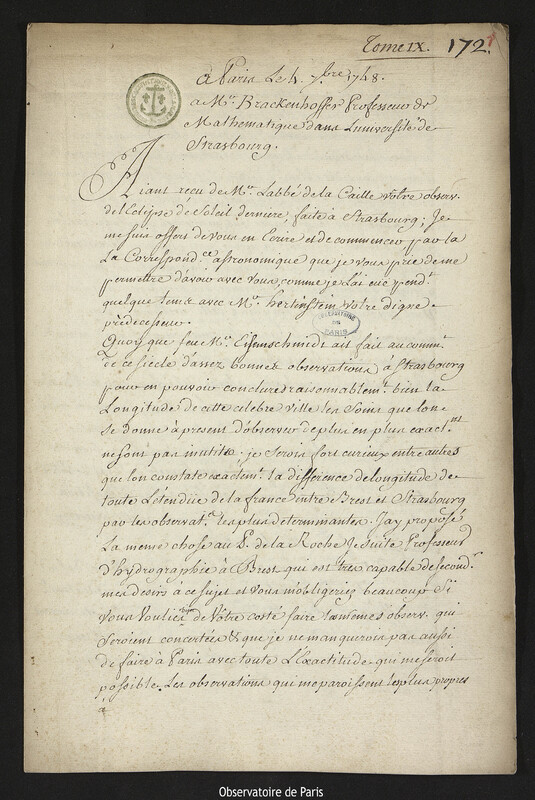 Tome IX. 172
à Paris Le 4. 7bre 1748.
a Mr. Brackenhoffer Professeur de
Mathematique dans L'université de
Strasbourg.
Aiant reçu de Mr. Labbé de la Caille votre observ.
de l'Eclipse de Soleil derniere, faite à Strasbourg; Je
me suis offert de vous en Ecrire et de commencer par la
La Correspond.ce astronomique que je vous prie de me
permettre d'avoir avec vous comme je l'ai eüe pendt.
quelque tems avec Mr. hertenstein votre digne
prédecesseur.
Quoy que feu Mr. Eisenschmidt ait fait au commt.
de ce siecle d'assez bonnes observations à Strasbourg
pour en pouvoir conclure raisonnablemt. bien la
Longitude de cette celebre ville les soins que l'on
se donne à present d'observer de plus en plus exactmt
ne sont pas inutiles. je serois fort curieux entre autres
que l'on constate exactemt. la difference de longitude de
toute L'étendüe de la france entre Brest et Strasbourg
par les observat.s les plus determinantes. J'ay proposé
La meme chose au P. de la Roche Jesuite Professeur
d'hydrographie à Brest qui est tres capable de second.r
mes desirs a ce sujet et vous m'obligeriez beaucoup si
vous vouliez de votre costé faire les memes observ. qui
seroient concertées & que je ne manquerois pas aussi
de faire à Paris avec toute L'Exactitude qui me seroit
possible. Les observations qui me paroissent les plus propres
a
OBSERVATOIRE
DE
PARIS
Observatoire de Paris